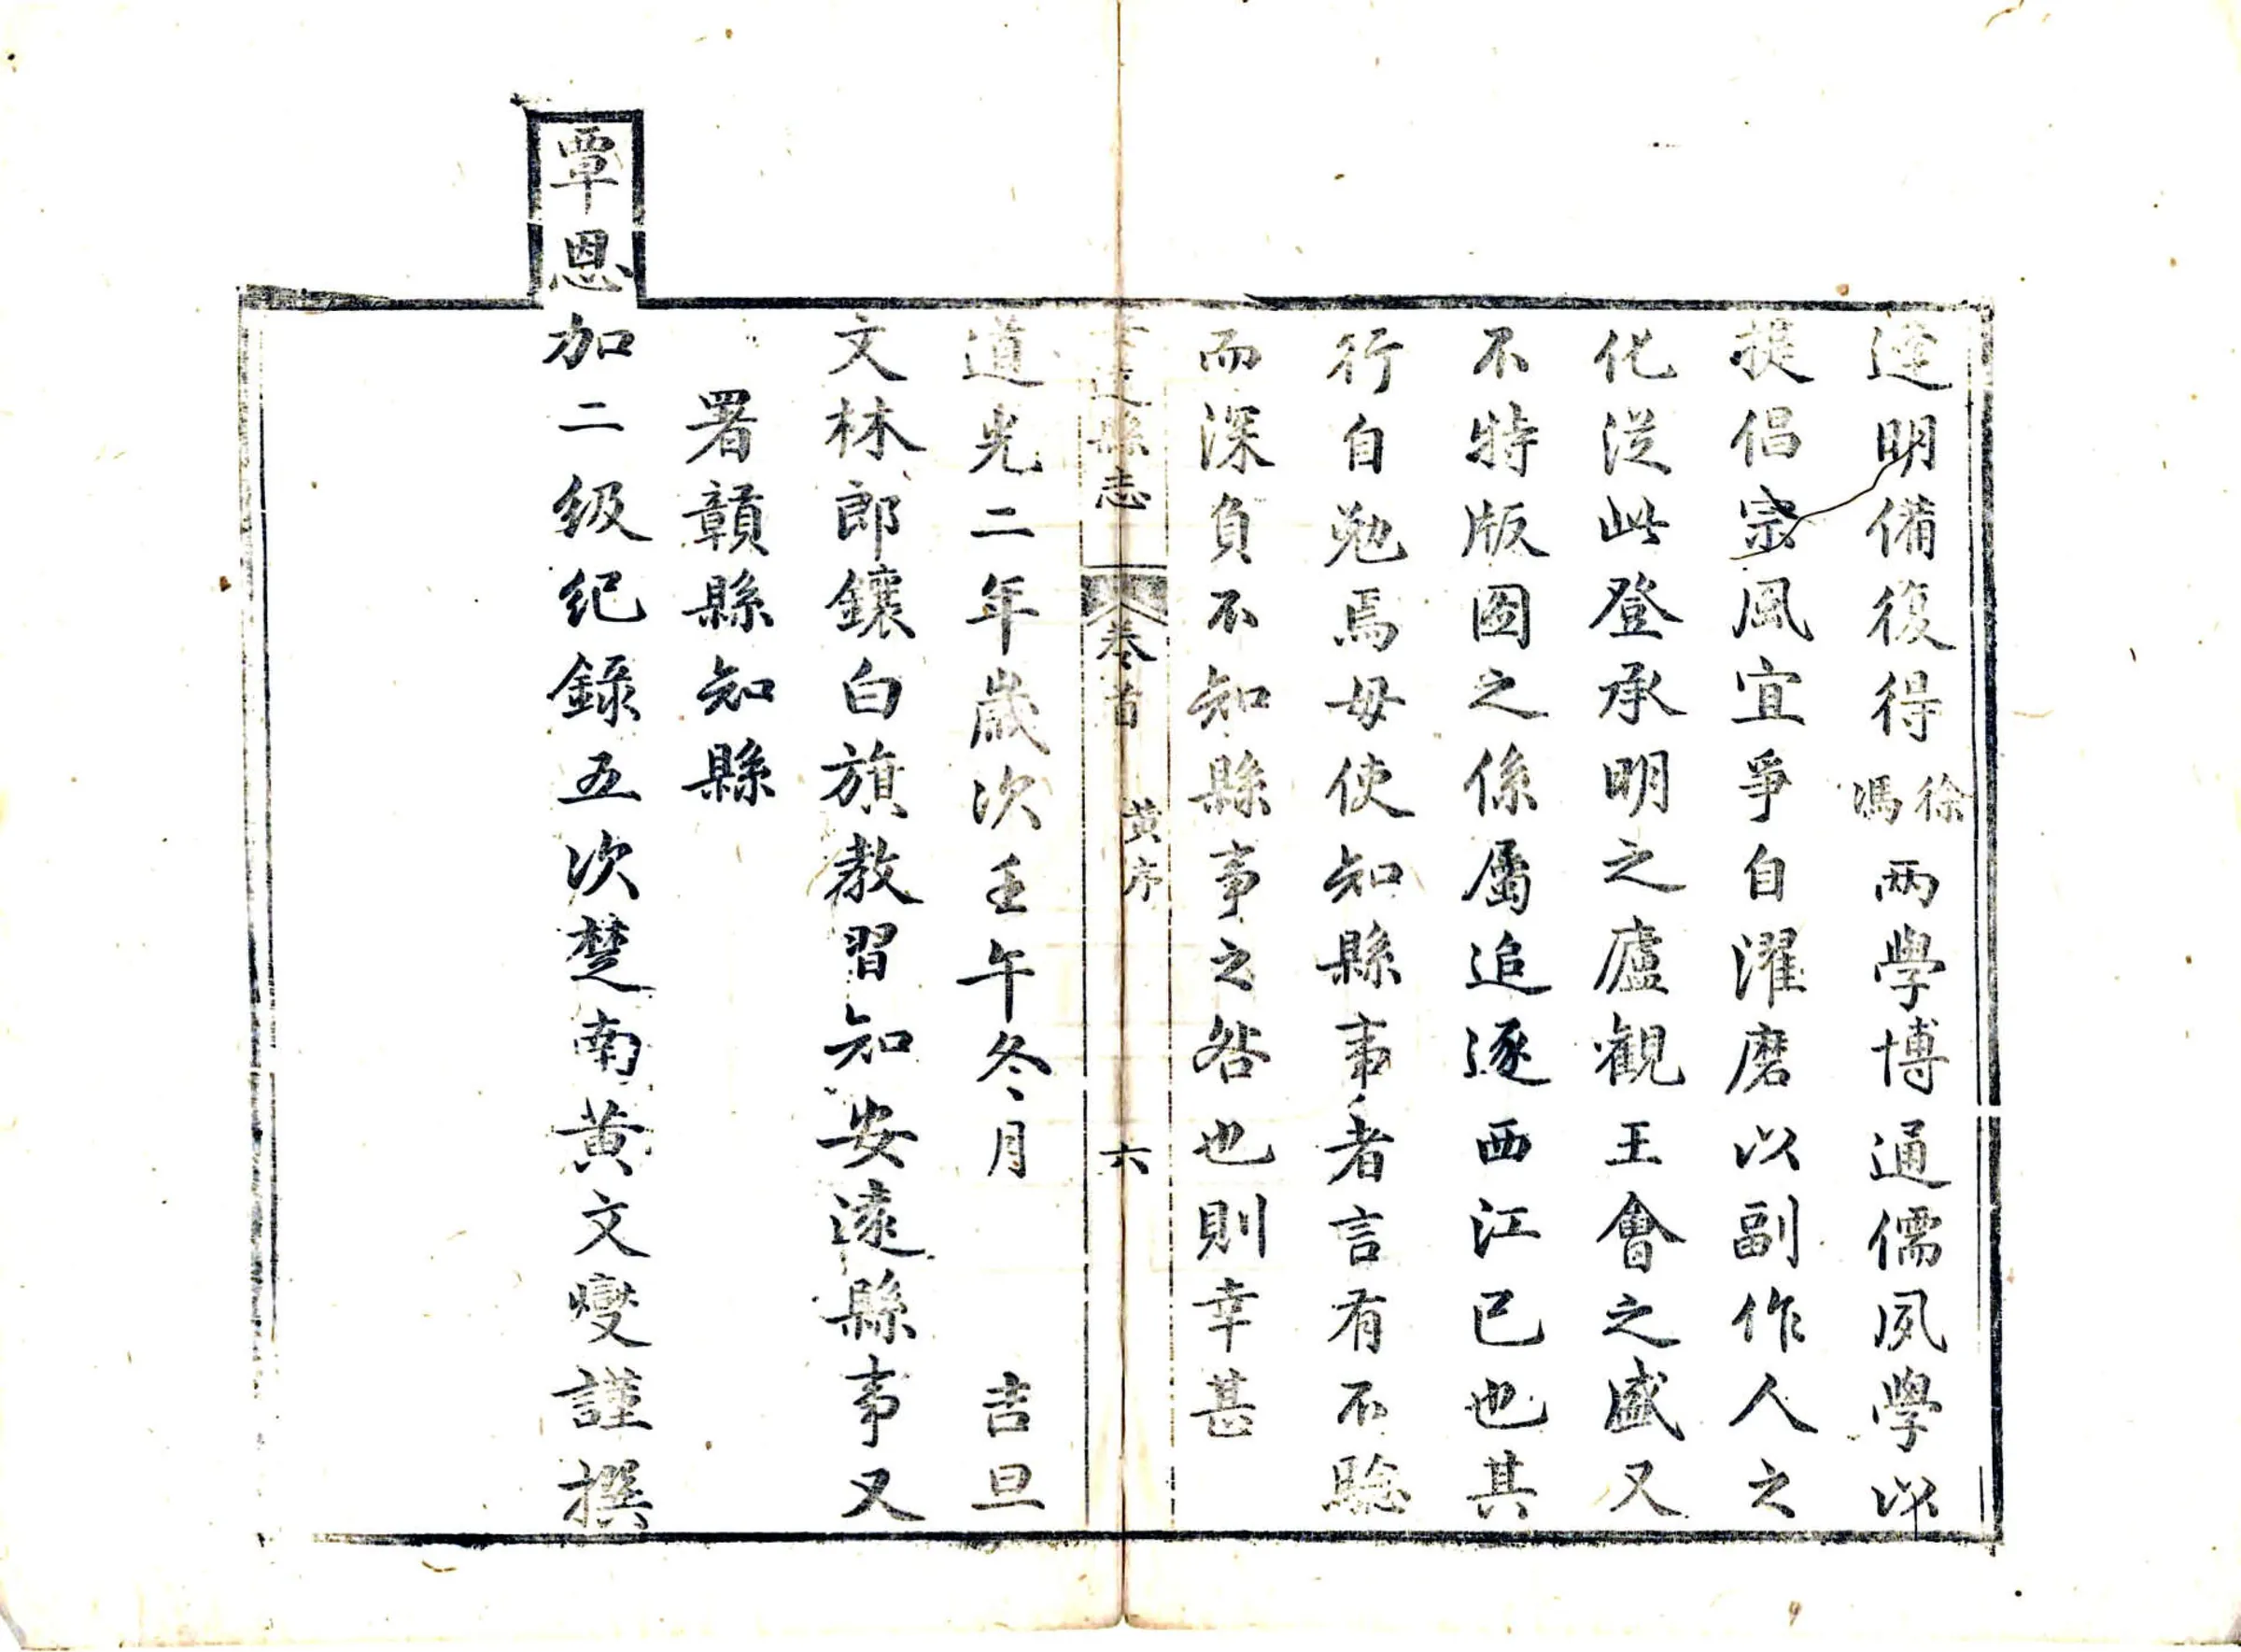 達明備復得徐馮两學博通儒夙學以
提倡宗風宜爭自濯磨以副作人之
化從此登承明之廬觀王會之盛又
不特版圖之係屬追逐西江已也其
行自勉焉毋使知縣事者言有不驗
而深負不知縣事之咎也則幸甚
遠縣志 卷首 黄序 六
道光二年歲次壬午冬月 吉旦
文林郎鑲白旗教習知安遠縣事又
署贛縣知縣
覃恩加二级纪錄五次楚南黄文燮謹撰